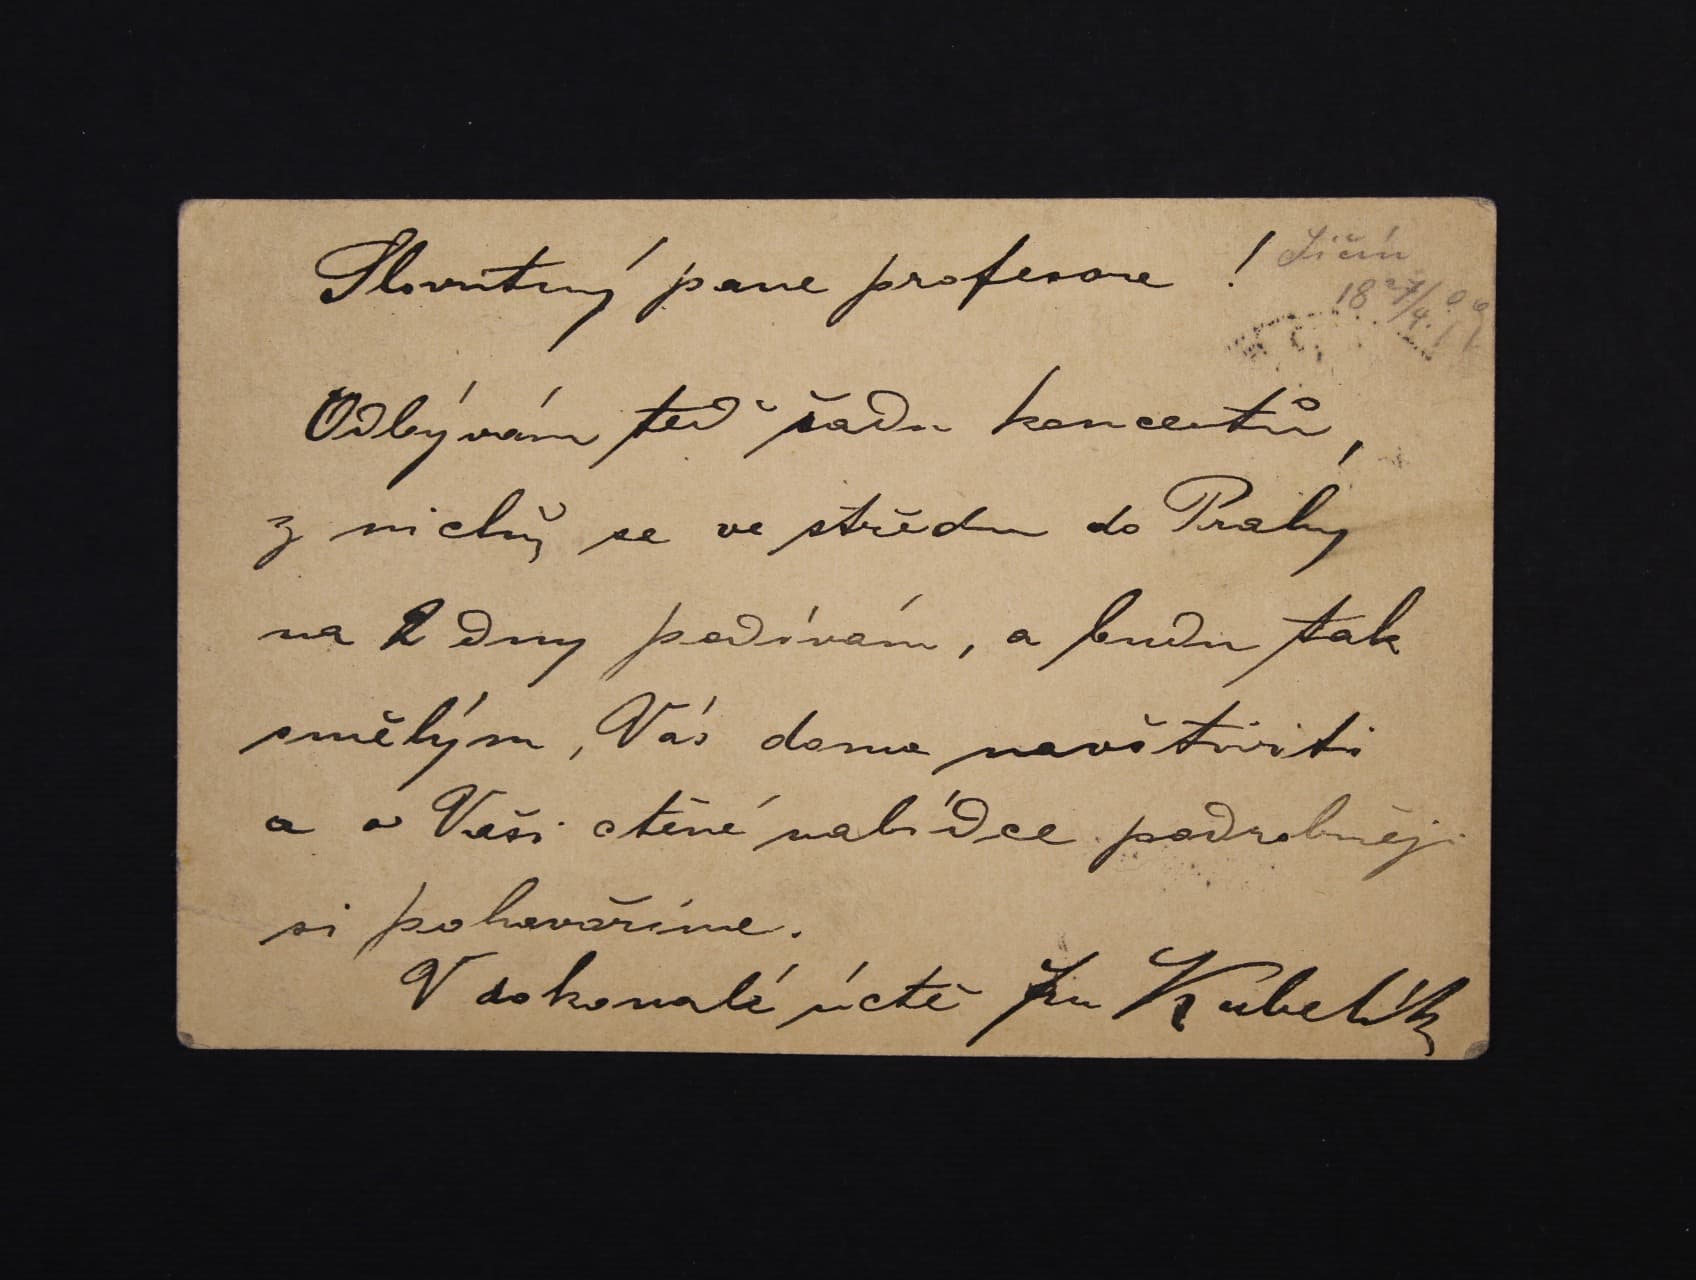 Slovutný pane profesore !
Jičín
18 27/4.
Odbývám teď řadu koncertů,
z nichž se ve středu do Prahy
na 2 dny podívám, a budu tak
smělým, Vás doma navštíviti
a o Vaší ctěné nabídce podrobněji
si pohovoříme.
V dokonalé úctě Jan Kubelík